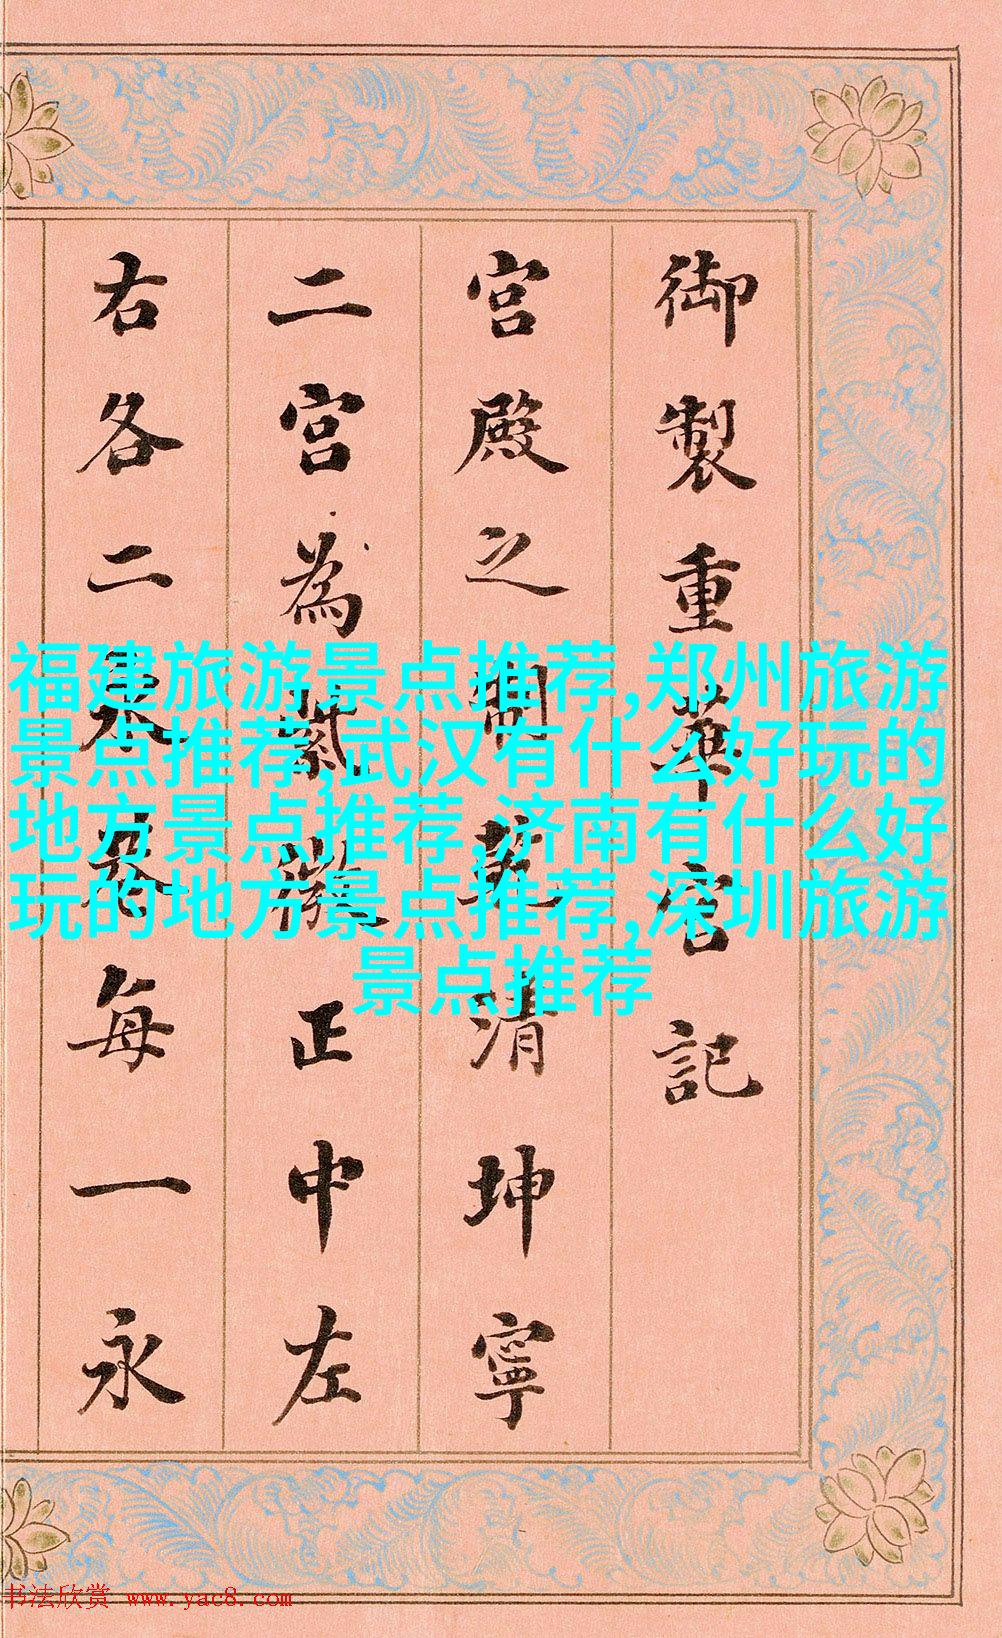 御製重華宮記
宮殿之制乾清坤寧
二宮為紫微正中左
右各二永巷每一永
福建旅游景点推荐,郑州旅游
景点推荐,武汉有什么好玩的
地方景点推荐,济南有什么好
玩的地方景点推荐,深圳旅游
景点推荐
书法欣赏 www.yac8.com